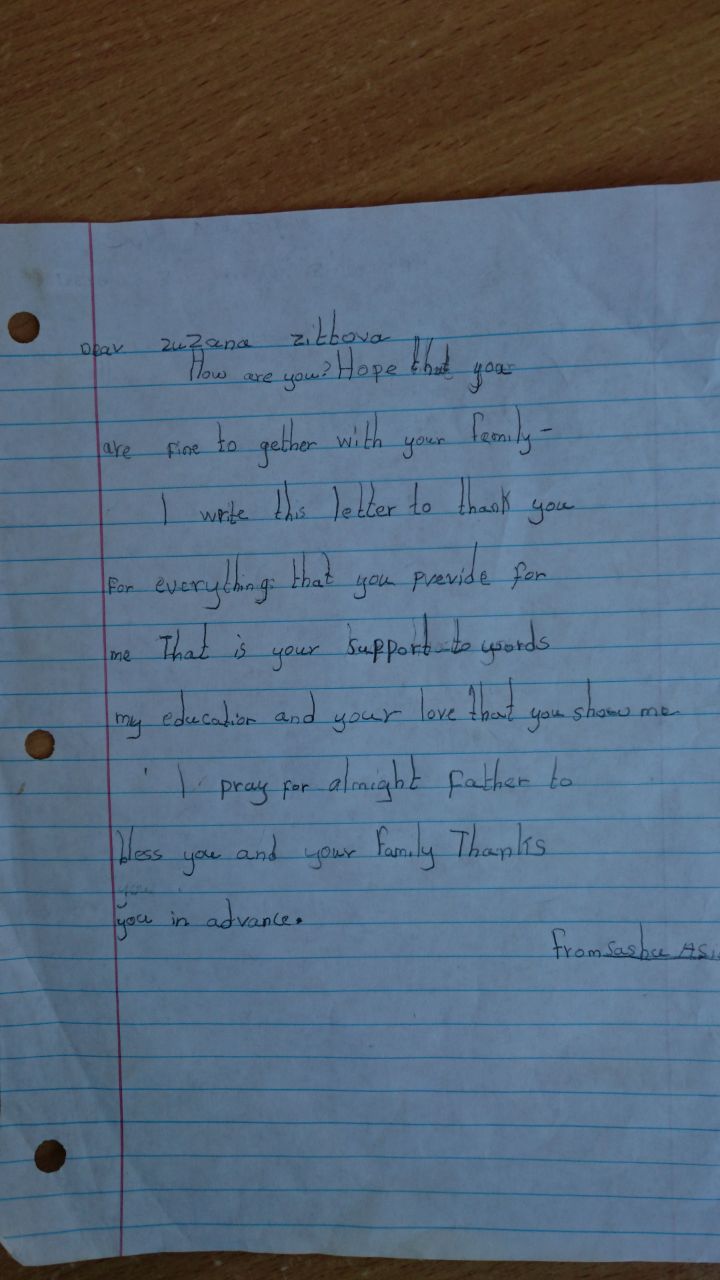 Dear zuzana zitbova
How are you? Hope that you
are fine to gether with your family-
I write this letter to thank you
For everything that you previde for
me That is your support to words
my education and your love that you show me
I pray for almight Father to
bless you and your family Thanks
you
you in advance.
from Sasha